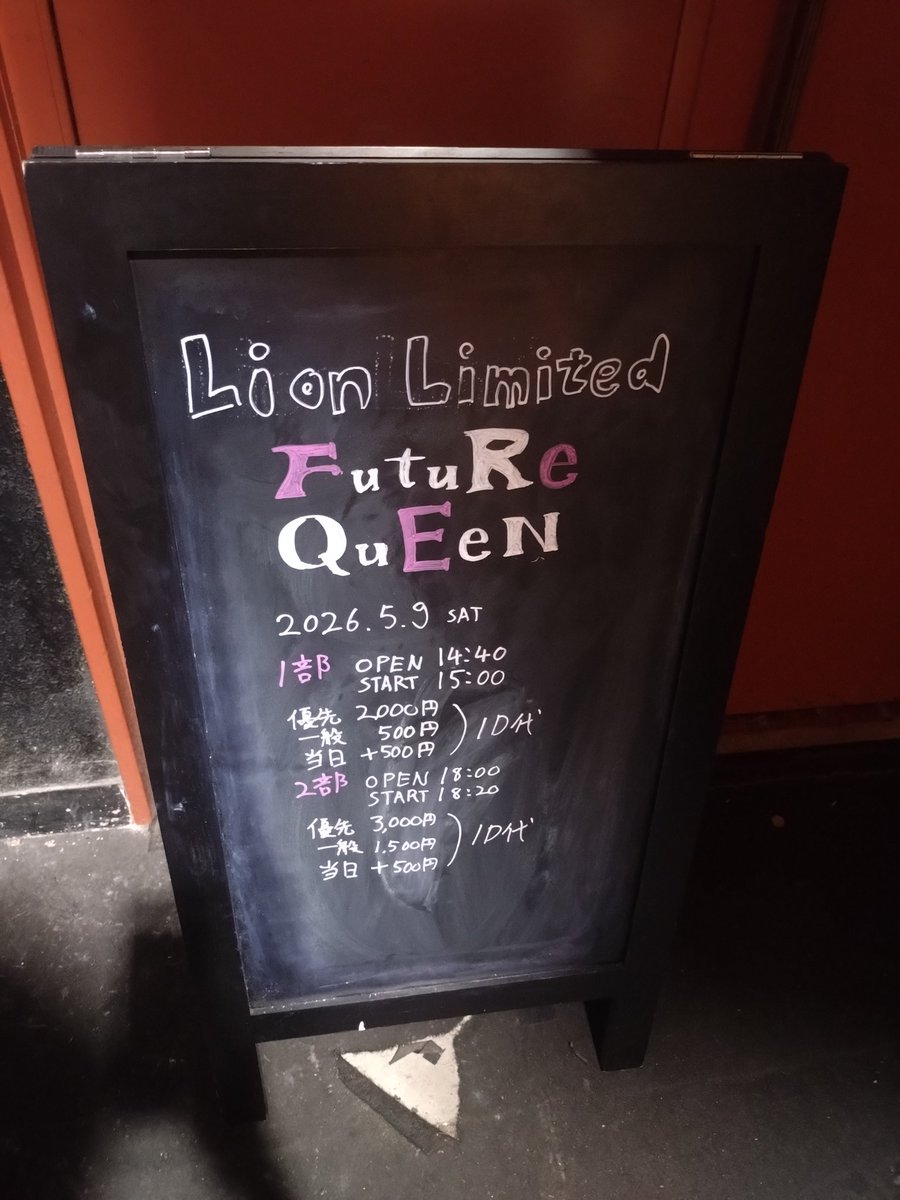 Lion Limited
FutuRe
QuEeN
2026.5.9 SAT
1部 OPEN 14:40
START 15:00
優先 2,000円
一般 500円
当日 +500円
1D代
2部 OPEN 18:00
START 18:20
優先 3,000円
一般 1,500円
当日 +500円
1D代